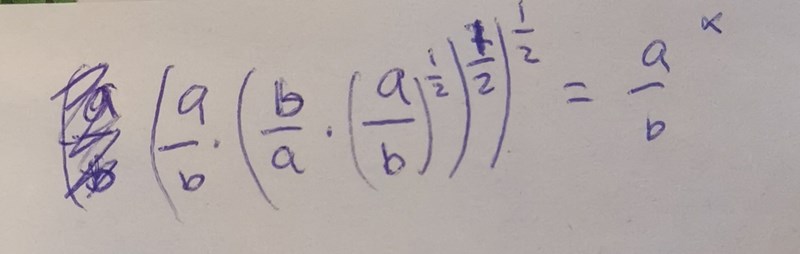 (a/b · (b/a · (a/b)^1/2)^1/2)^1/2 = a/b ^x